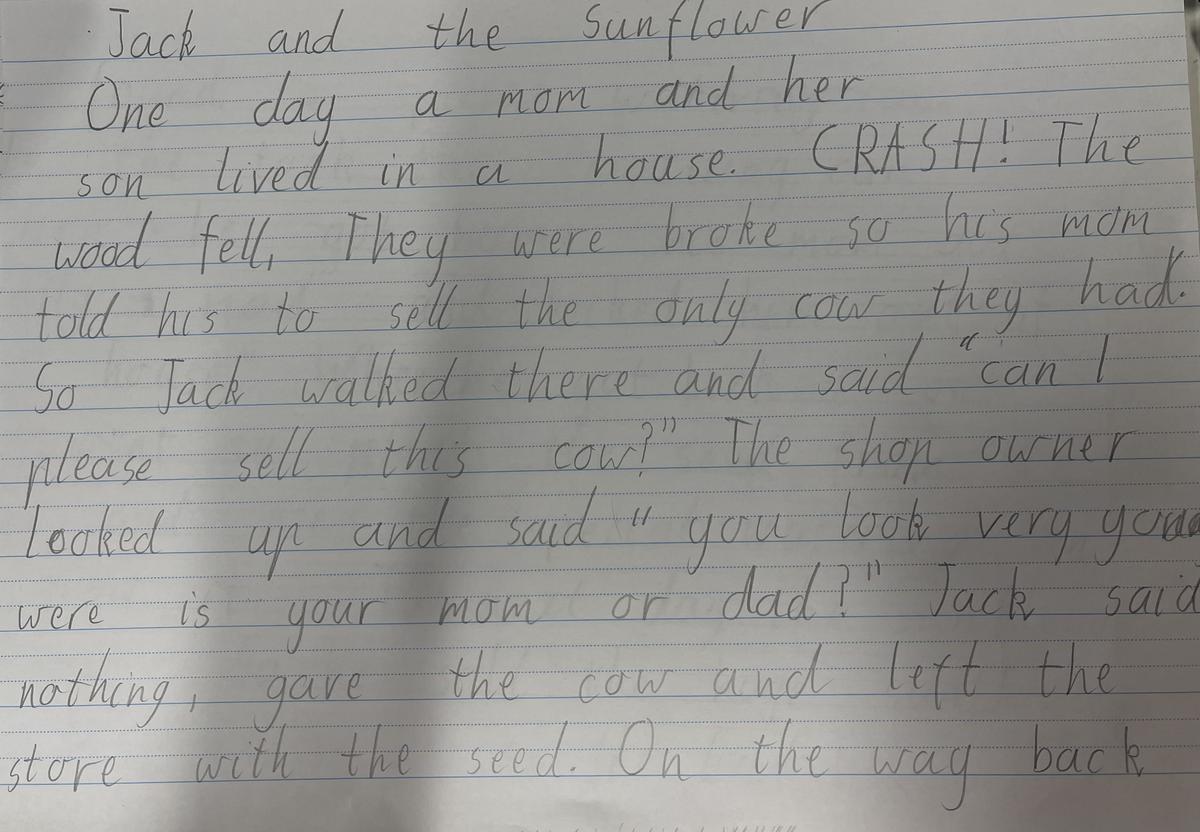 Jack and the Sunflower
One day a mom and her
son lived in a house. CRASH! The
wood fell, They were broke so his mom
told his to sell the only cow they had.
So Jack walked there and said "can I
please sell this cow?" The shop owner
looked up and said " you look very
were is your mom or dad?" Jack said
nothing, gave the cow and left the
store with the seed. On the way back